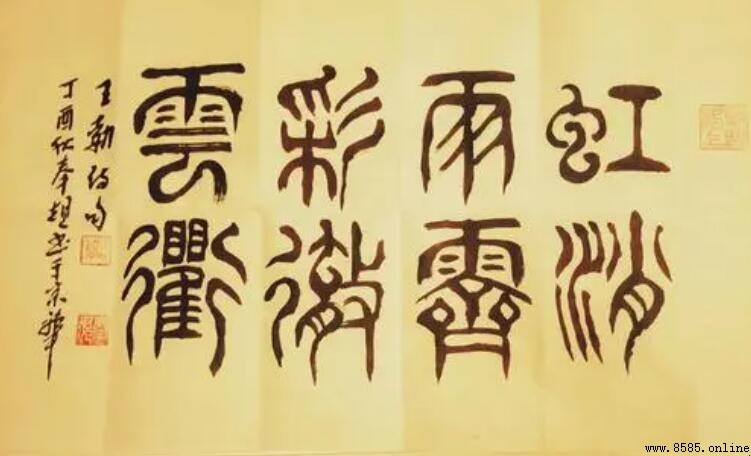 虹消
雨霽
彩徹
雲衢
王勃诗句
丁酉仲春超书于京華
www.8585.online